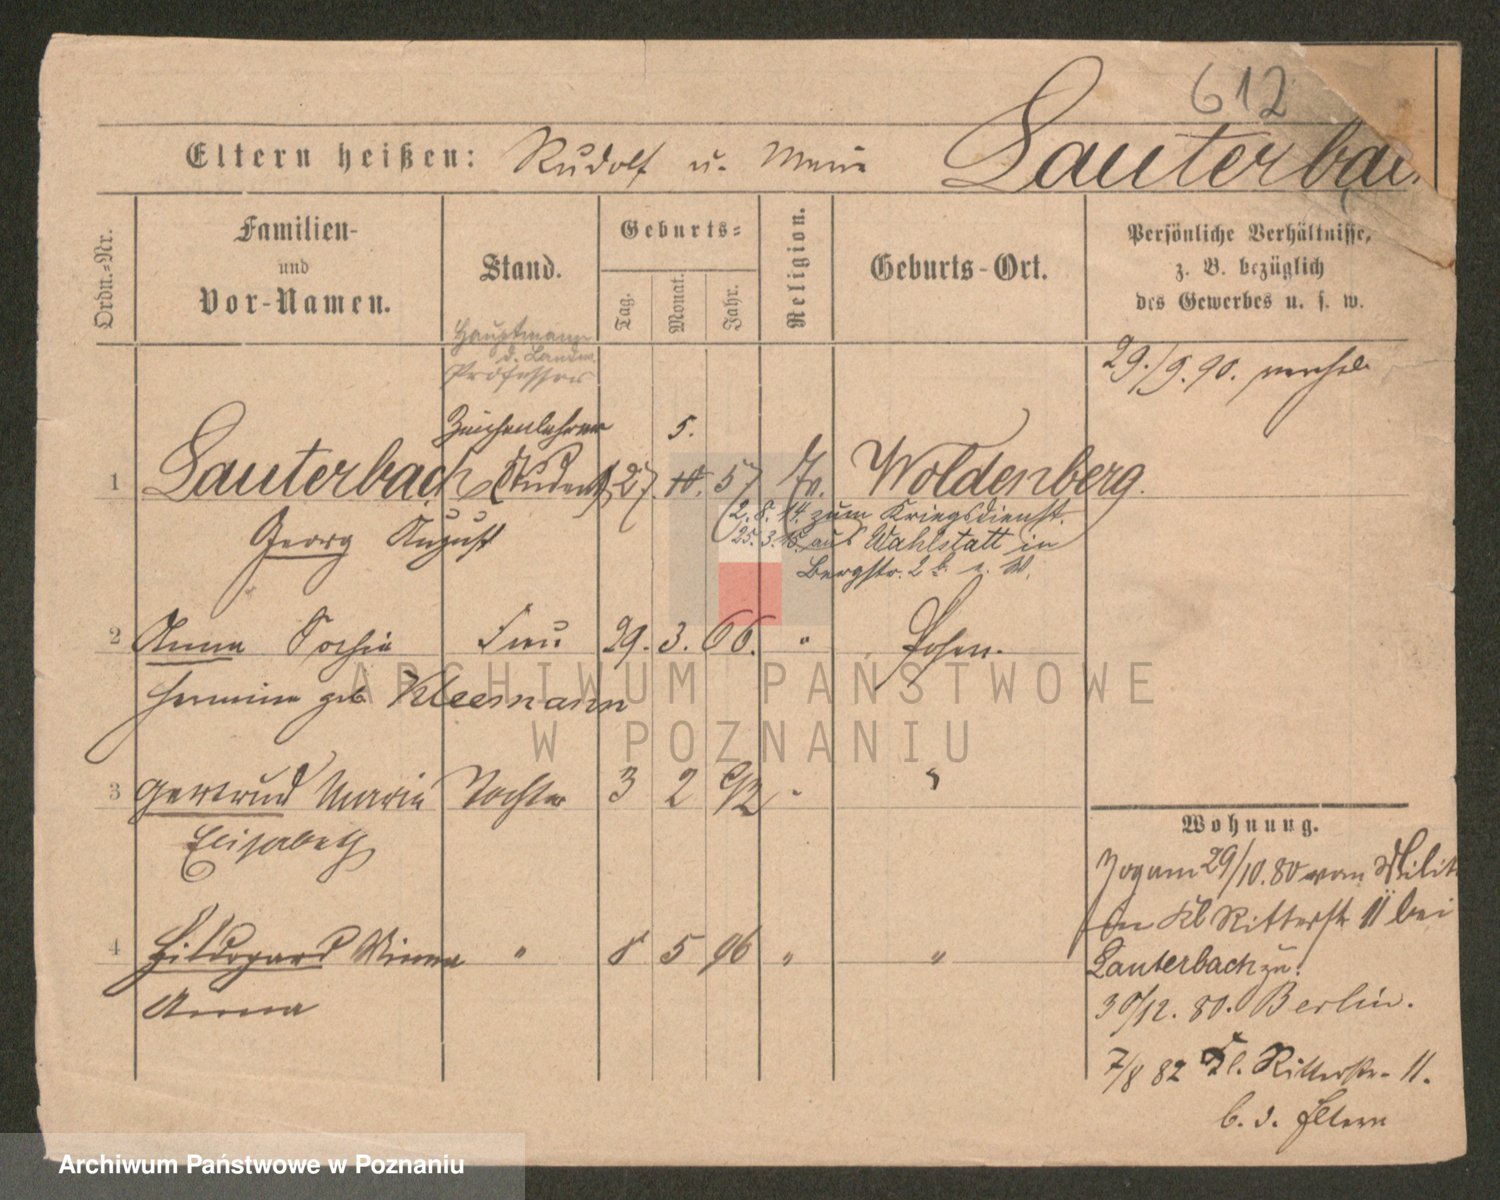 612
Eltern heißen: Rudolf u. Marie Lauterbac
Ordn.-Nr.
Familien-
und
Vor-Namen.
Stand.
Geburts-
Tag.
Monat.
Jahr.
Religion.
Geburts-Ort.
Persönliche Verhältnisse,
z. B. bezüglich
des Gewerbes u. s. w.
Hauptmann
d. Landw.
Professor
29./9.90. verehel.
Zeichenlehrer 5.
1 Lauterbach (Student) 27. 10. 57 Ev. Woldenberg.
Georg August
2. 8. 14. zum Kriegsdienst.
25. 3. 16. aus Wahlstatt in
Bergstr. 2b. z. W.
2 Anna Sophie Frau 29. 3. 66. " Posen.
Hermine geb. Kleemann
3 Gertrud Marie Tochter 3 2 92 " "
Elisabeth
4 Hildegard Minna " 8 5 96 " "
Anna
Wohnung.
Zog am 29/10.80 vom Milit
in Kl Ritterstr 11 bei
Lauterbach zu.
30/12. 80. Berlin.
7/8 82 Kl. Ritterstr. 11.
b. d. Eltern
ARCHIWUM PAŃSTWOWE
W POZNANIU
Archiwum Państwowe w Poznaniu